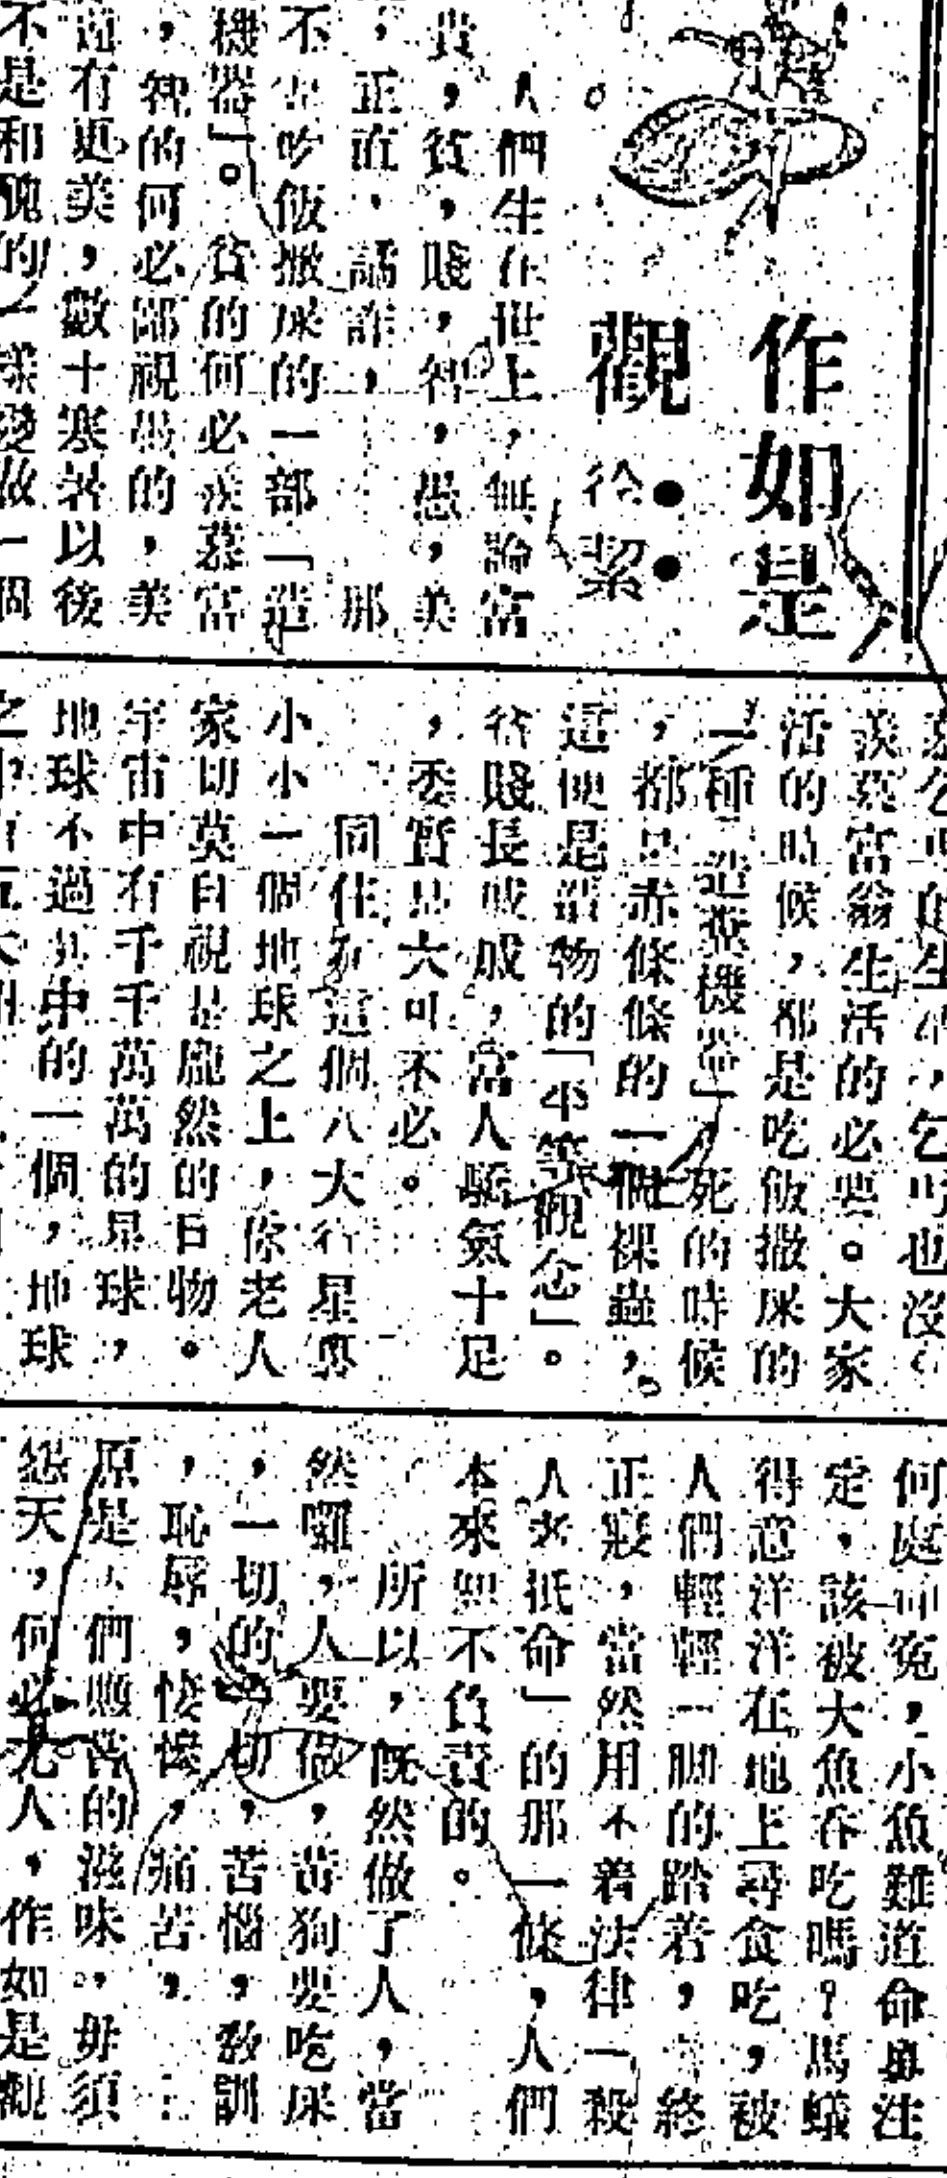 作如是
觀
徐
人們生在世上，無論富
貴，貧，賤，智，愚，美
，正直，譎詐，那
不是吃飯撒尿的一部「造
機器」。貧的何必羨慕富
，智的何必鄙視愚的，美
有更美，數十寒暑以後
不是和醜的一樣變做一個
的生活，乞丐也沒
羨慕富翁生活的必要。大家
活的時候，都是吃飯撒尿的
一種「造糞機器」死的時候
，都是赤條條的一個裸蟲，
這便是造物的「平等觀念」。
貧賤長戚戚，富人驕氣十足
，委實是大可不必。
同住在這個八大行星
小小一個地球之上，你老人
家切莫自視是龐然的巨物。
宇宙中有千千萬萬的星球，
地球不過其中的一個，地球
何處叫冤，小魚難道命單注
定，該被大魚吞吃嗎？馬蟻
得意洋洋在地上尋食吃，被
人們輕輕一脚的踏着，終
正寢，當然用不着法律「殺
人者抵命」的那一條，人們
本來是不負責的。
所以，既然做了人，當
然囉，人要做，苗狗要吃尿
，一切的一切，苦惱，教訓
，恥辱，悽慘，痛苦，
原是人們應嘗的滋味。毋須
怨天，何必尤人，作如是觀